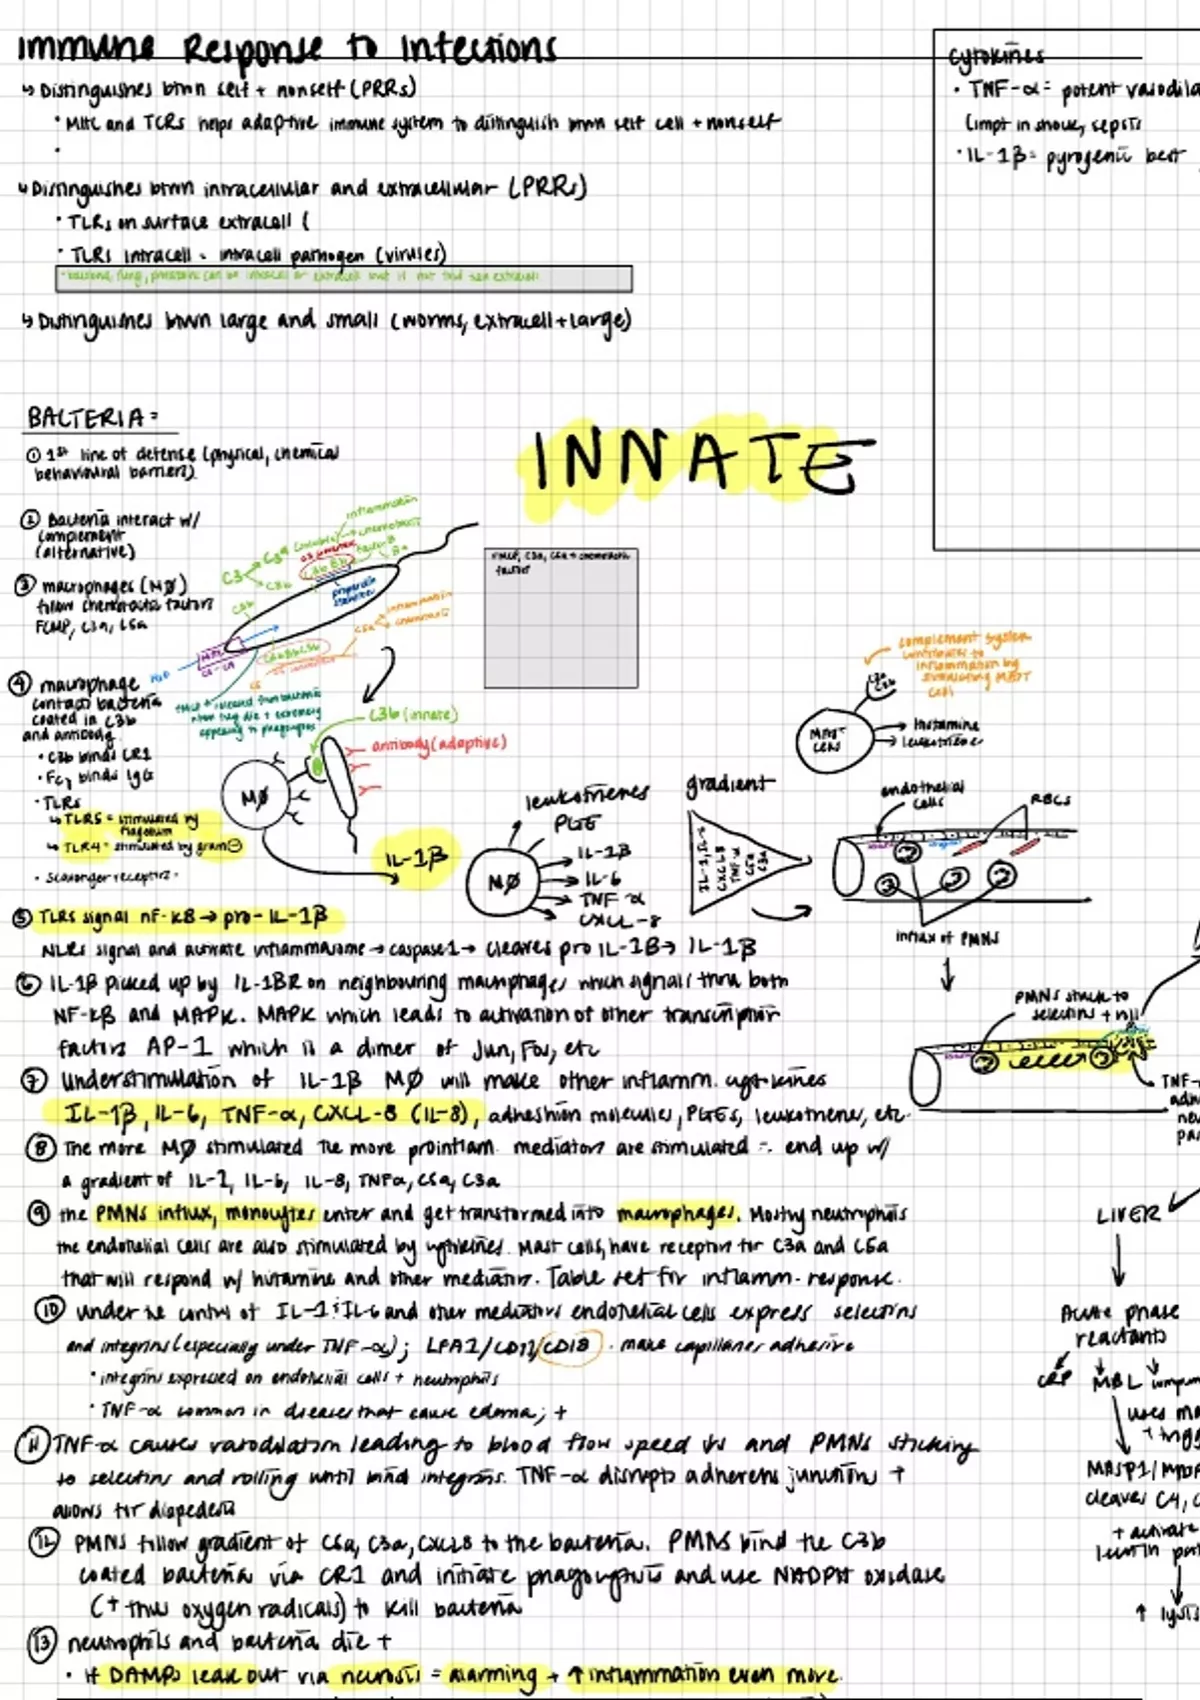 Immune Response to Infections
↳ Distinguishes btwn self + nonself (PRRs)
• MHC and TCRs helps adaptive immune system to distinguish btwn self cell + nonself
•
↳ Distinguishes btwn intracellular and extracellular (PRRs)
• TLRs on surface extracell (
• TLRs intracell = intracell pathogen (viruses)
↳ Distinguishes btwn large and small (worms, extracell + large)
cytokines
• TNF-α = potent vasodila
(impt in shock, sepsis
• IL-1β = pyrogenic best
BACTERIA =
INNATE
① 1st line of defense (physical, chemical
behavioural barriers)
② Bacteria interact w/
complement
(alternative)
③ macrophages (MØ)
follow chemotactic factors
C3a, C5a
④ macrophage
contacts bacteria
coated in C3b
and antibody.
• C3b binds CR1
• Fcγ binds IgG
• TLRs
↳ TLR5 = stimulated by
flagellum
↳ TLR4 = stimulated by gram ⊖
• scavenger receptors.
inflammation
C3 → C3a
C3b
properdin
inflammation
C5a
C3b (innate)
antibody (adaptive)
MØ
IL-1β
C3a, C5a = chemotactic
factors
leukotrienes
PGE
MØ
→ IL-1β
→ IL-6
→ TNF-α
→ CXCL-8
gradient
complement system
contributes to
inflammation by
stimulating MAST
cells
MAST
CELLS
→ histamine
→ leukotriene
endothelial
cells
RBCs
influx of PMNs
PMNs stuck to
selectins + roll
⑤ TLRs signal nF-κB → pro-IL-1β
NLRs signal and activate inflammasome → caspase1 → cleaves pro IL-1β → IL-1β
⑥ IL-1β picked up by IL-1βR on neighbouring macrophages which signals thru both
NF-κβ and MAPK. MAPK which leads to activation of other transcription
factors AP-1 which is a dimer of Jun, Fos, etc
⑦ Under stimulation of IL-1β MØ will make other inflamm. cytokines
IL-1β, IL-6, TNF-α, CXCL-8 (IL-8), adheshion molecules, PGEs, leukotrienes, etc.
⑧ The more MØ stimulated the more proinflam. mediators are stimulated ∴ end up w/
a gradient of IL-1, IL-6, IL-8, TNFα, C5a, C3a
⑨ the PMNs influx, monocytes enter and get transformed into macrophages. Mostly neutrophils
the endothelial cells are also stimulated by cytokines. Mast cells, have receptors for C3a and C5a
that will respond w/ histamine and other mediators. Table set for inflamm. response.
⑩ under the control of IL-1, IL6 and other mediators endothelial cells express selectins
and integrins (especially under TNF-α); LFA1/CD11/CD18. make capillaries adhesive
• integrins expressed on endothelial cells + neutrophils
• TNF-α common in diseases that cause edema; +
⑪ TNF-α causes vasodilation leading to blood flow speed ↓s and PMNs sticking
to selectins and rolling until bind integrins. TNF-α disrupts adherens junctions +
allows for diapedesis
⑫ PMNs follow gradient of C5a, C3a, CXCL8 to the bacteria. PMNs bind the C3b
coated bacteria via CR1 and initiate phagocytosis and use NADPH oxidase
(+ thus oxygen radicals) to kill bacteria
⑬ neutrophils and bacteria die +
• if DAMPs leak out via necrosis = alarming + ↑ inflammation even more.
TNF-
adh
LIVER
Acute phase
reactants
CRP MBL comp
uses ma
+ trigg
MASP1/MASP
cleaves C4, C
+ activate
lectin pat
↑ lysis